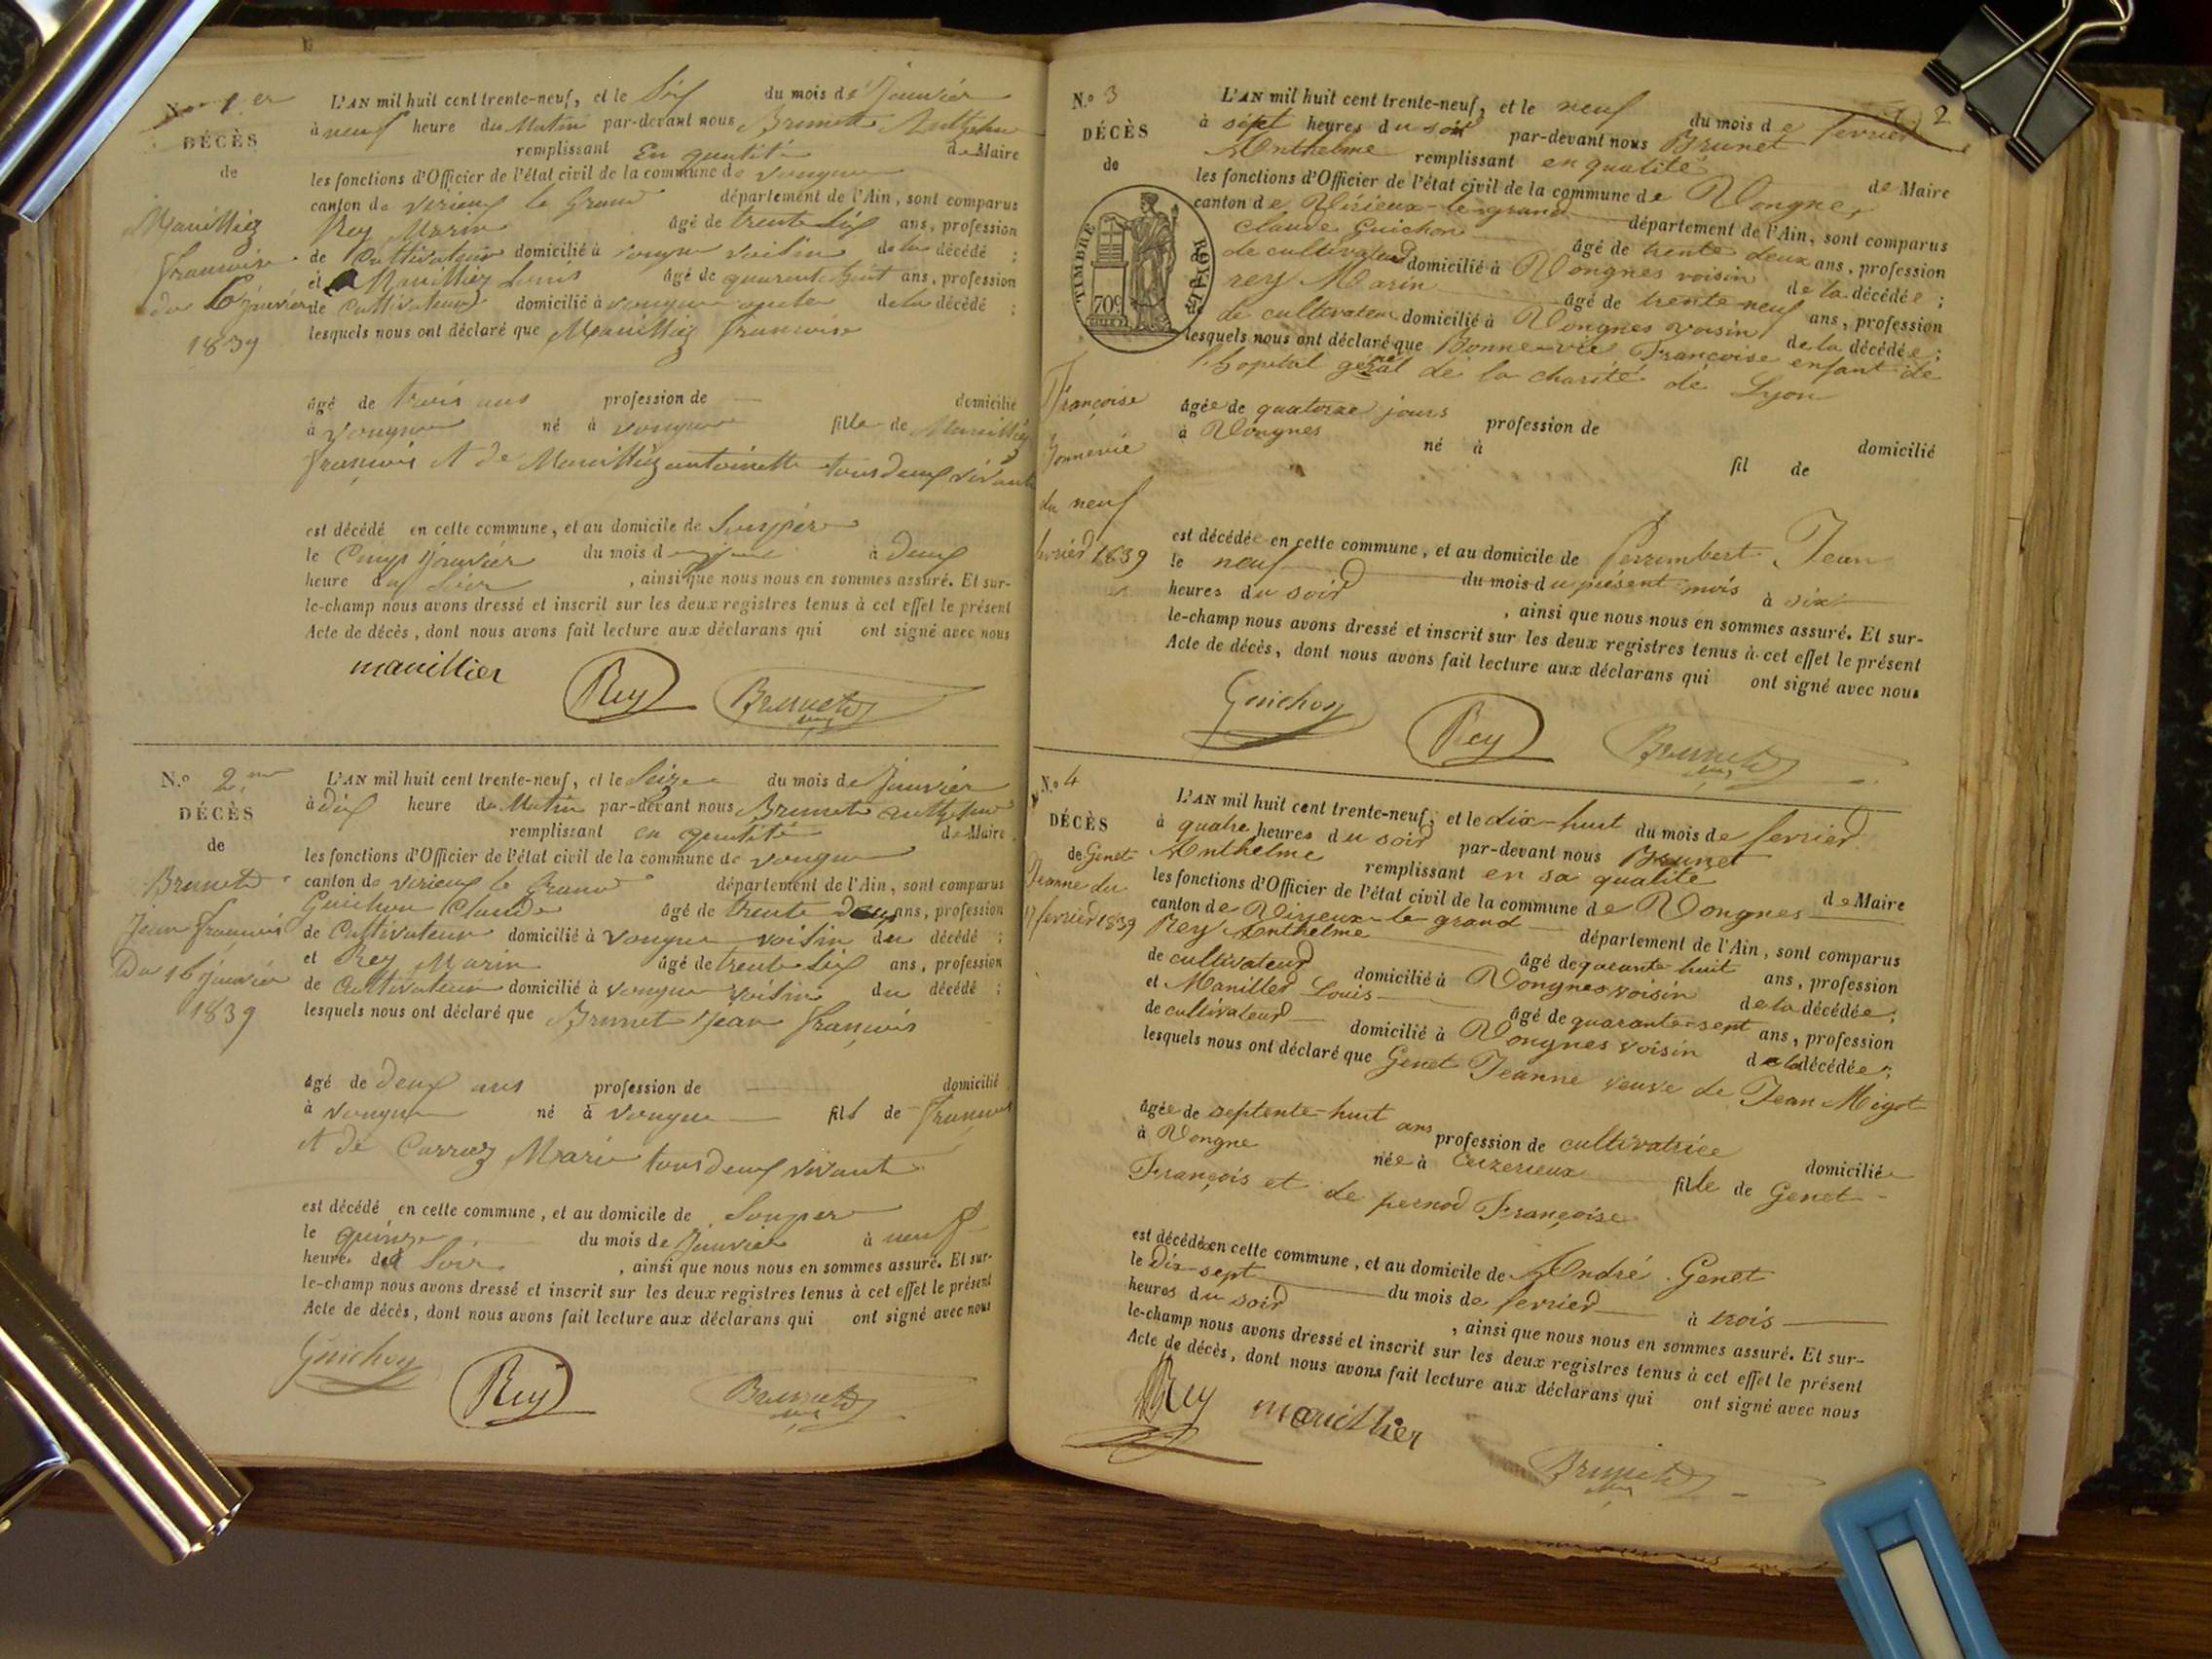 N.º 1er
DÉCÈS
de
Manillier
françoise
du 6 janvier
1839
L'AN mil huit cent trente-neuf, et le Six du mois de Janvier
à neuf heure du Matin par-devant nous Brunet Anthelme
remplissant En qualité de Maire
les fonctions d'Officier de l'état civil de la commune de Vongne
canton de virieux le Grand département de l'Ain, sont comparus
Rey Marin âgé de trente Six ans, profession
de Cultivateur domicilié à vongne voisin de la décédé ;
et Louis âgé de quarente Sept ans, profession
de Cultivateur domicilié à vongne oncle de la décédé ;
lesquels nous ont déclaré que françoise
âgé de trois ans profession de domicilié
à vongne né à vongne fille de
françois et de antoinette tous deux vivant
est décédé en cette commune, et au domicile de Son père
le Cinq Janvier du mois d à deux
heure du Soir , ainsi que nous nous en sommes assuré. Et sur-
le-champ nous avons dressé et inscrit sur les deux registres tenus à cet effet le présent
Acte de décès, dont nous avons fait lecture aux déclarans qui ont signé avec nous
manillier Rey Brunet
N.º 2me
DÉCÈS
de
Brunet
Jean françois
Du 16 janvier
1839
L'AN mil huit cent trente-neuf, et le Seize du mois de Janvier
à dix heure du Matin par-devant nous Brunet anthelme
remplissant en qualité de Maire
les fonctions d'Officier de l'état civil de la commune de vongne
canton de virieux le Grand département de l'Ain, sont comparus
Guichon Claude âgé de trente Deux ans, profession
de Cultivateur domicilié à vongne voisin du décédé ;
et Rey Marin âgé de trente Six ans, profession
de Cultivateur domicilié à vongne voisin du décédé ;
lesquels nous ont déclaré que Brunet Jean françois
âgé de deux ans profession de domicilié
à vongne né à vongne fils de françois
et de Carraz Marie tous deux vivant
est décédé en cette commune, et au domicile de Son père
le quinze du mois de Janvier à neuf
heure du Soir , ainsi que nous nous en sommes assuré. Et sur-
le-champ nous avons dressé et inscrit sur les deux registres tenus à cet effet le présent
Acte de décès, dont nous avons fait lecture aux déclarans qui ont signé avec nous
Guichon Rey Brunet
2
N.º 3
DÉCÈS
de
TIMBRE ROYAL
70c
Françoise
Bonnevie
du neuf
fevrier 1839
L'AN mil huit cent trente-neuf, et le neuf du mois de fevrier
à sept heures du soir par-devant nous Brunet
Anthelme remplissant en qualité de Maire
les fonctions d'Officier de l'état civil de la commune de Vongnes
canton de Virieux-le-grand département de l'Ain, sont comparus
Claude Guichon âgé de trente deux ans, profession
de cultivateur domicilié à Vongnes voisin de la décédée ;
rey Marin âgé de trente-neuf ans, profession
de cultivateur domicilié à Vongnes voisin de la décédée ;
lesquels nous ont déclaré que Bonne-vie Françoise enfant de
l'hopital général de la charité de Lyon
âgée de quatorze jours profession de domicilié
à Vongnes né à fil de
est décédée en cette commune, et au domicile de ferrembert Jean
le neuf du mois du présent mois à six
heures du soir , ainsi que nous nous en sommes assuré. Et sur-
le-champ nous avons dressé et inscrit sur les deux registres tenus à cet effet le présent
Acte de décès, dont nous avons fait lecture aux déclarans qui ont signé avec nous
Guichon Rey Brunet
N.º 4
DÉCÈS
de Genet
Jeanne du
17 fevrier 1839
L'AN mil huit cent trente-neuf, et le dix-huit du mois de fevrier
à quatre heures du soir par-devant nous Brunet
Anthelme remplissant en sa qualité de Maire
les fonctions d'Officier de l'état civil de la commune de Vongnes
canton de Virieux-le grand département de l'Ain, sont comparus
Rey Anthelme âgé de quarante huit ans, profession
de cultivateur domicilié à Vongnes voisin de la décédée ;
et Manillier Louis âgé de quarante-sept ans, profession
de cultivateur domicilié à Vongnes voisin de la décédée ;
lesquels nous ont déclaré que Genet Jeanne veuve de Jean Migot
âgée de septente-huit ans profession de cultivatrice domiciliée
à Vongne née à Ceizerieux fille de Genet
François et de pernod Françoise
est décédée en cette commune, et au domicile de André Genet
le Dix-sept du mois de fevrier à trois
heures du soir , ainsi que nous nous en sommes assuré. Et sur-
le-champ nous avons dressé et inscrit sur les deux registres tenus à cet effet le présent
Acte de décès, dont nous avons fait lecture aux déclarans qui ont signé avec nous
Rey manillier Brunet